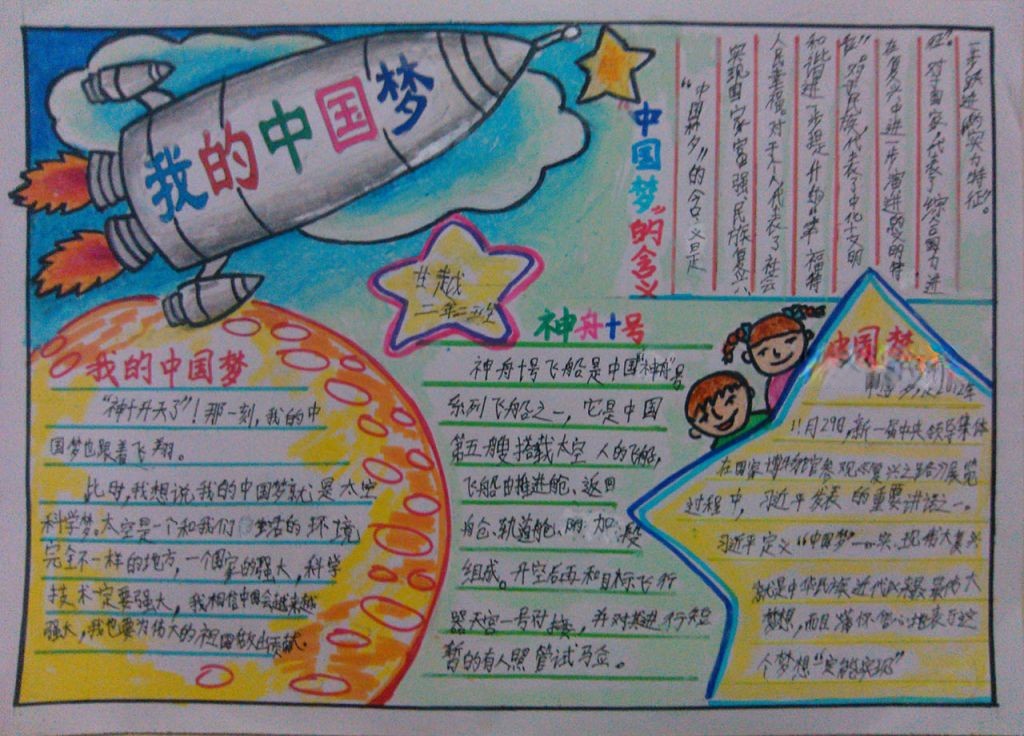 我的中国梦
"中国梦"的含义
"中国梦"的含义是
实现国家富强、民族复兴、
人民幸福。对于个人代表了社会
和谐进一步提升的"幸福特
征"对于民族代表了中华文明
在复兴中进一步演进的特
征"。对国家代表了综合国力进
一步跃进的实力特征"。
二年二班
我的中国梦
"神十升天了"！那一刻，我的中
国梦也跟着飞翔。
此时，我想说我的中国梦就是太空
科学梦。太空是一个和我们生活的环境
完全不一样的地方，一个国家的强大，科学
技术一定要强大，我相信中国会越来越
强大，我也要为伟大的祖国做出贡献。
神舟十号
神舟十号飞船是中国"神舟"号
系列飞船之一，它是中国
第五艘搭载太空人的飞船，
飞船由推进舱、返回
舱、轨道舱、附加段
组成。升空后再和目标飞行
器天宫一号对接，并对其进行短
暂的有人照管试验。
中国梦
2012年
11月29日，新一届中央领导集体
在国家博物馆参观复兴之路展览
过程中，习近平发表的重要讲话之一。
习近平定义"中国梦"—实现伟大复兴
就是中华民族近代以来最伟大
梦想，而且满怀信心地表示这
个梦想"实能实现"